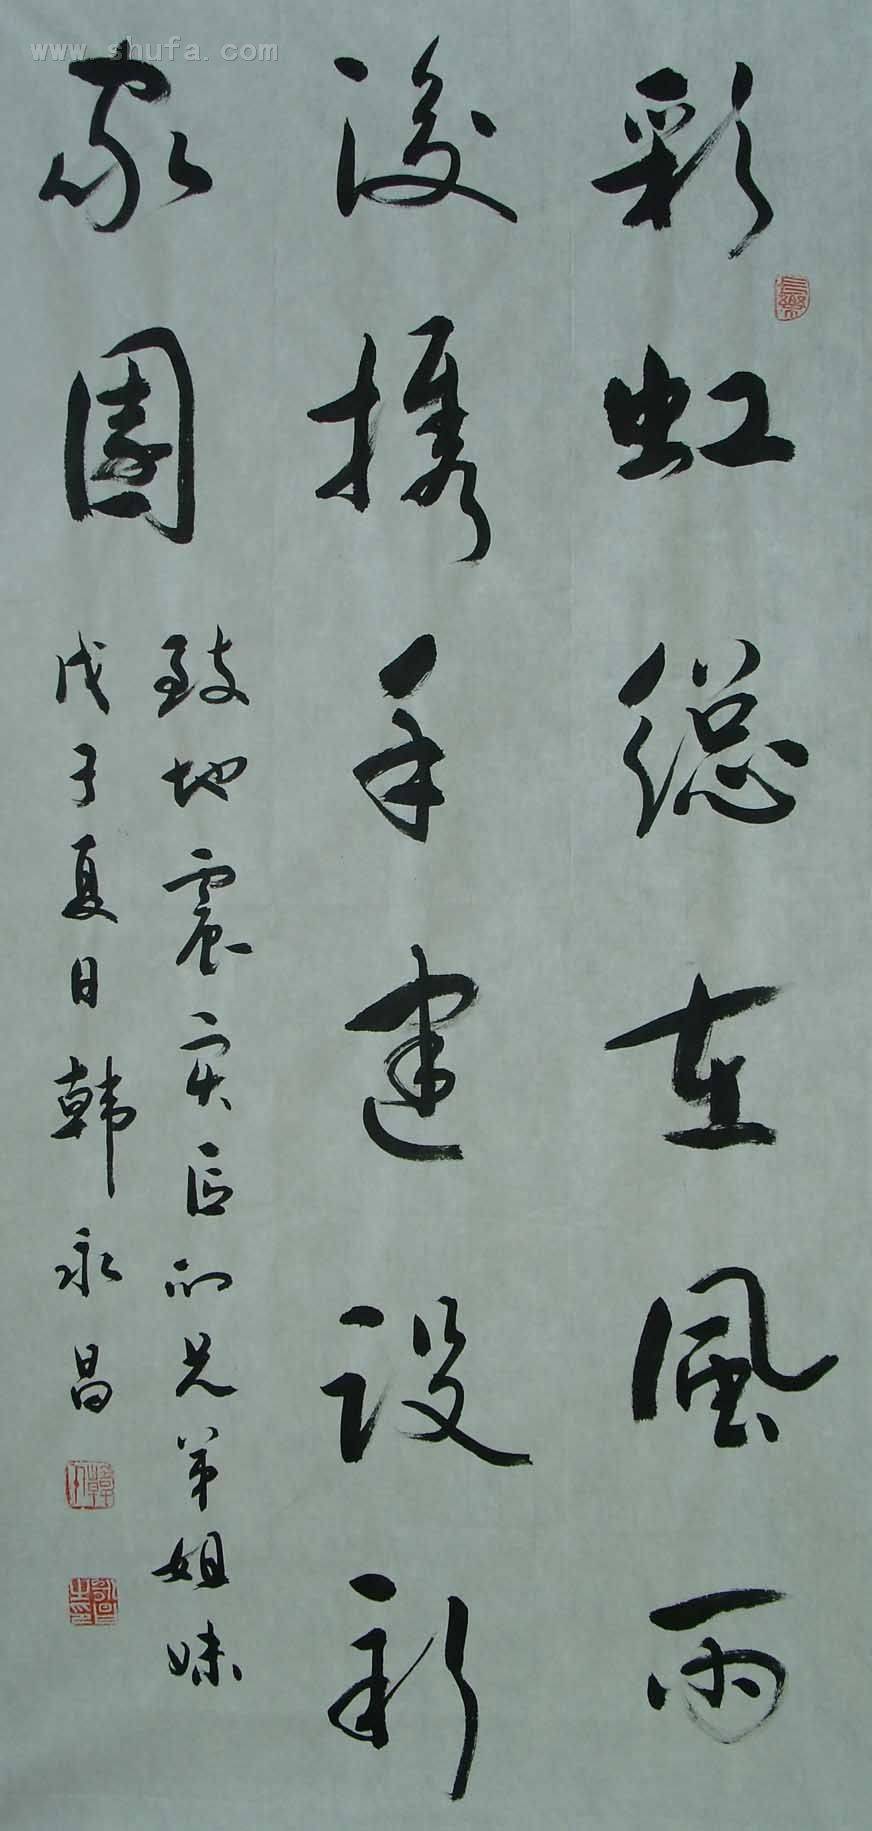 彩虹總在風雨
後携手建设新
家園
致地震灾区的兄弟姐妹
戊子夏日韩永昌
www.shufa.com